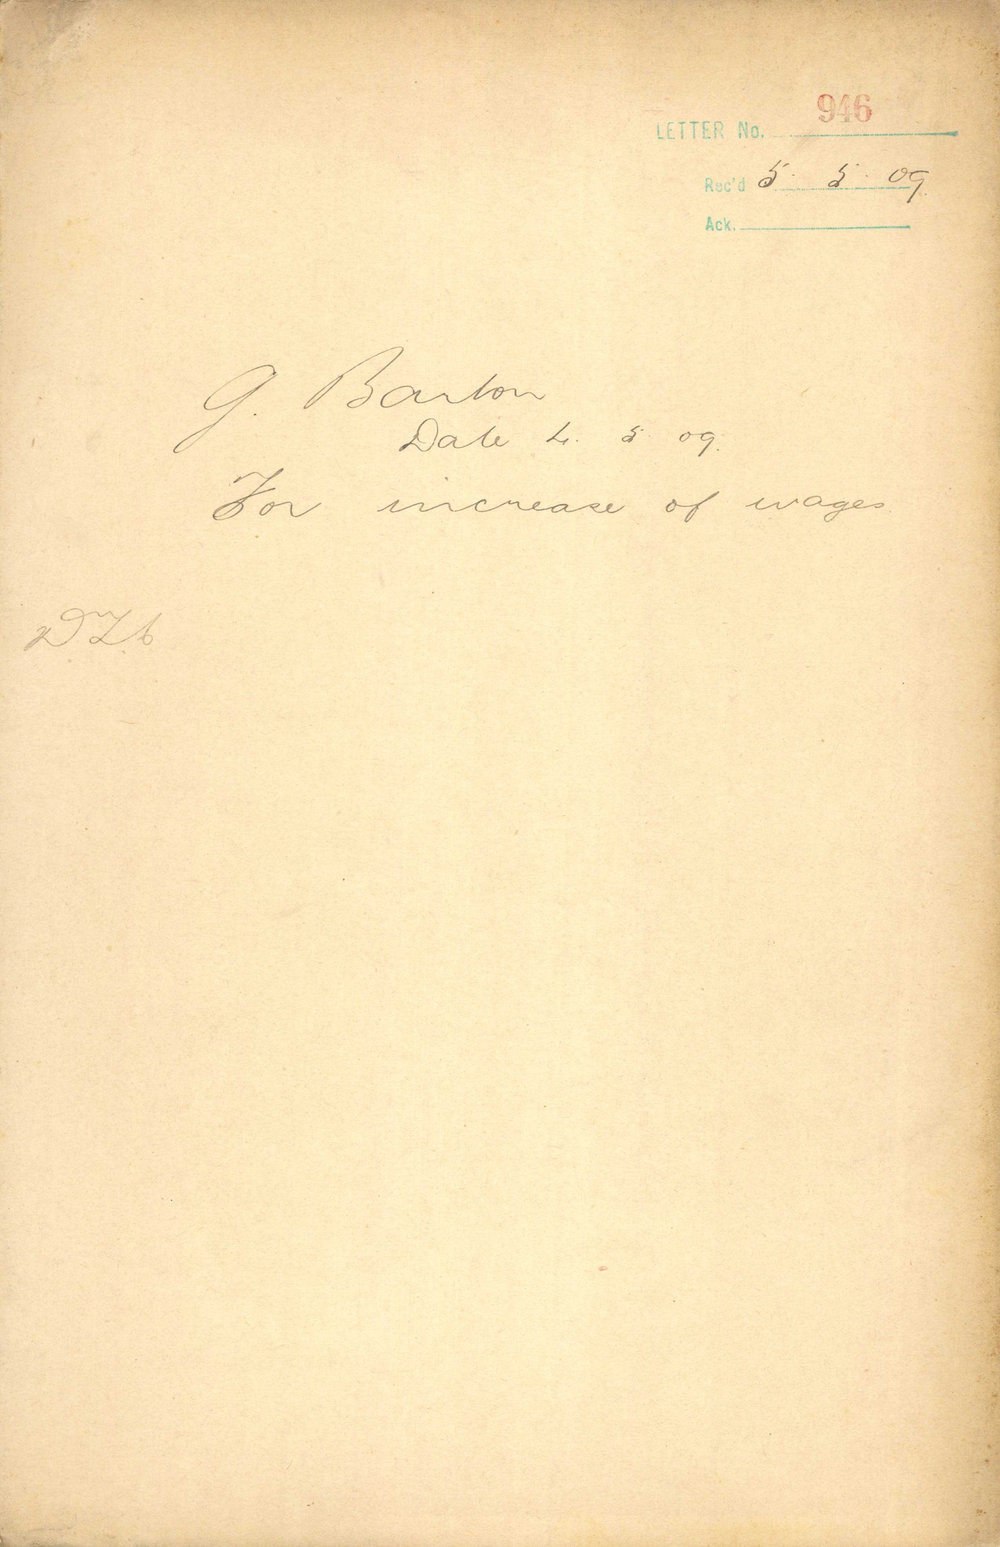 LETTER No. 946
Rec'd 5. 5. 09
Ack.
G. Barton
Date 4. 5. 09.
For increase of wages